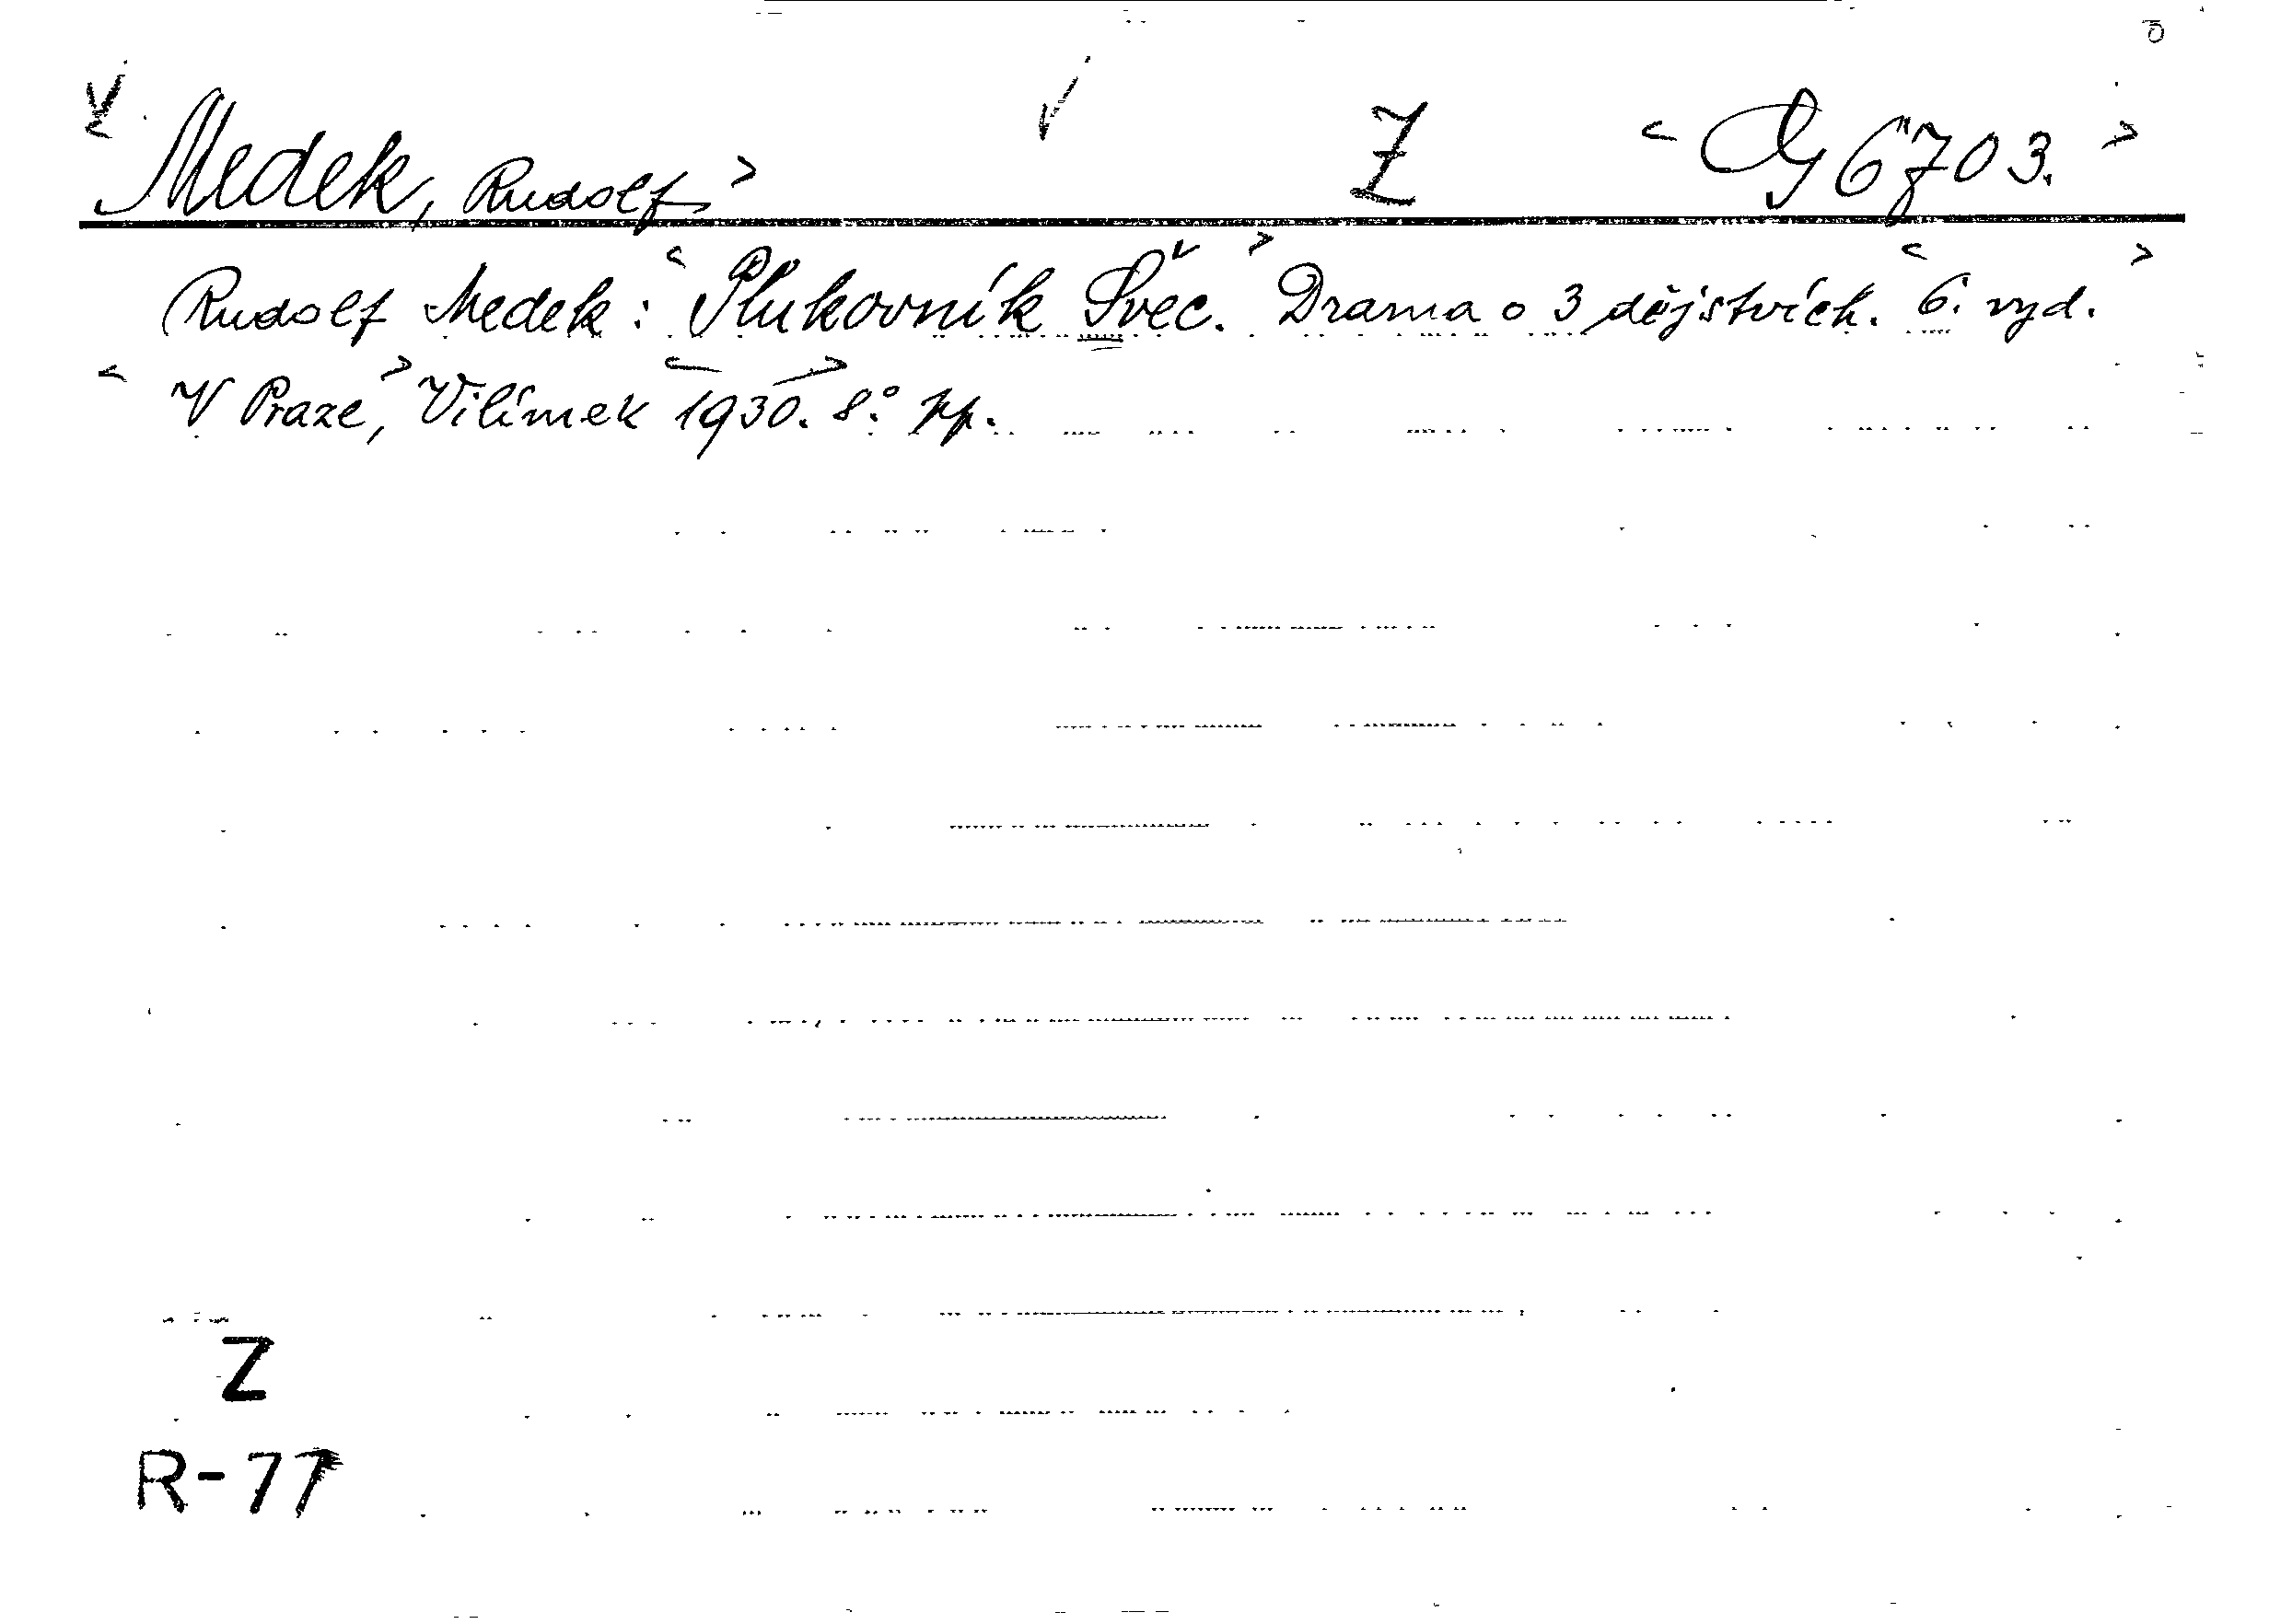 Medek, Rudolf> Z <Cg 6703.>
Rudolf Medek: <Plukovník Švec.> Drama o 3 dějstvích. <6. vyd.>
<V Praze,> Vilímek <1930.> 8.° pp.
Z
R-77